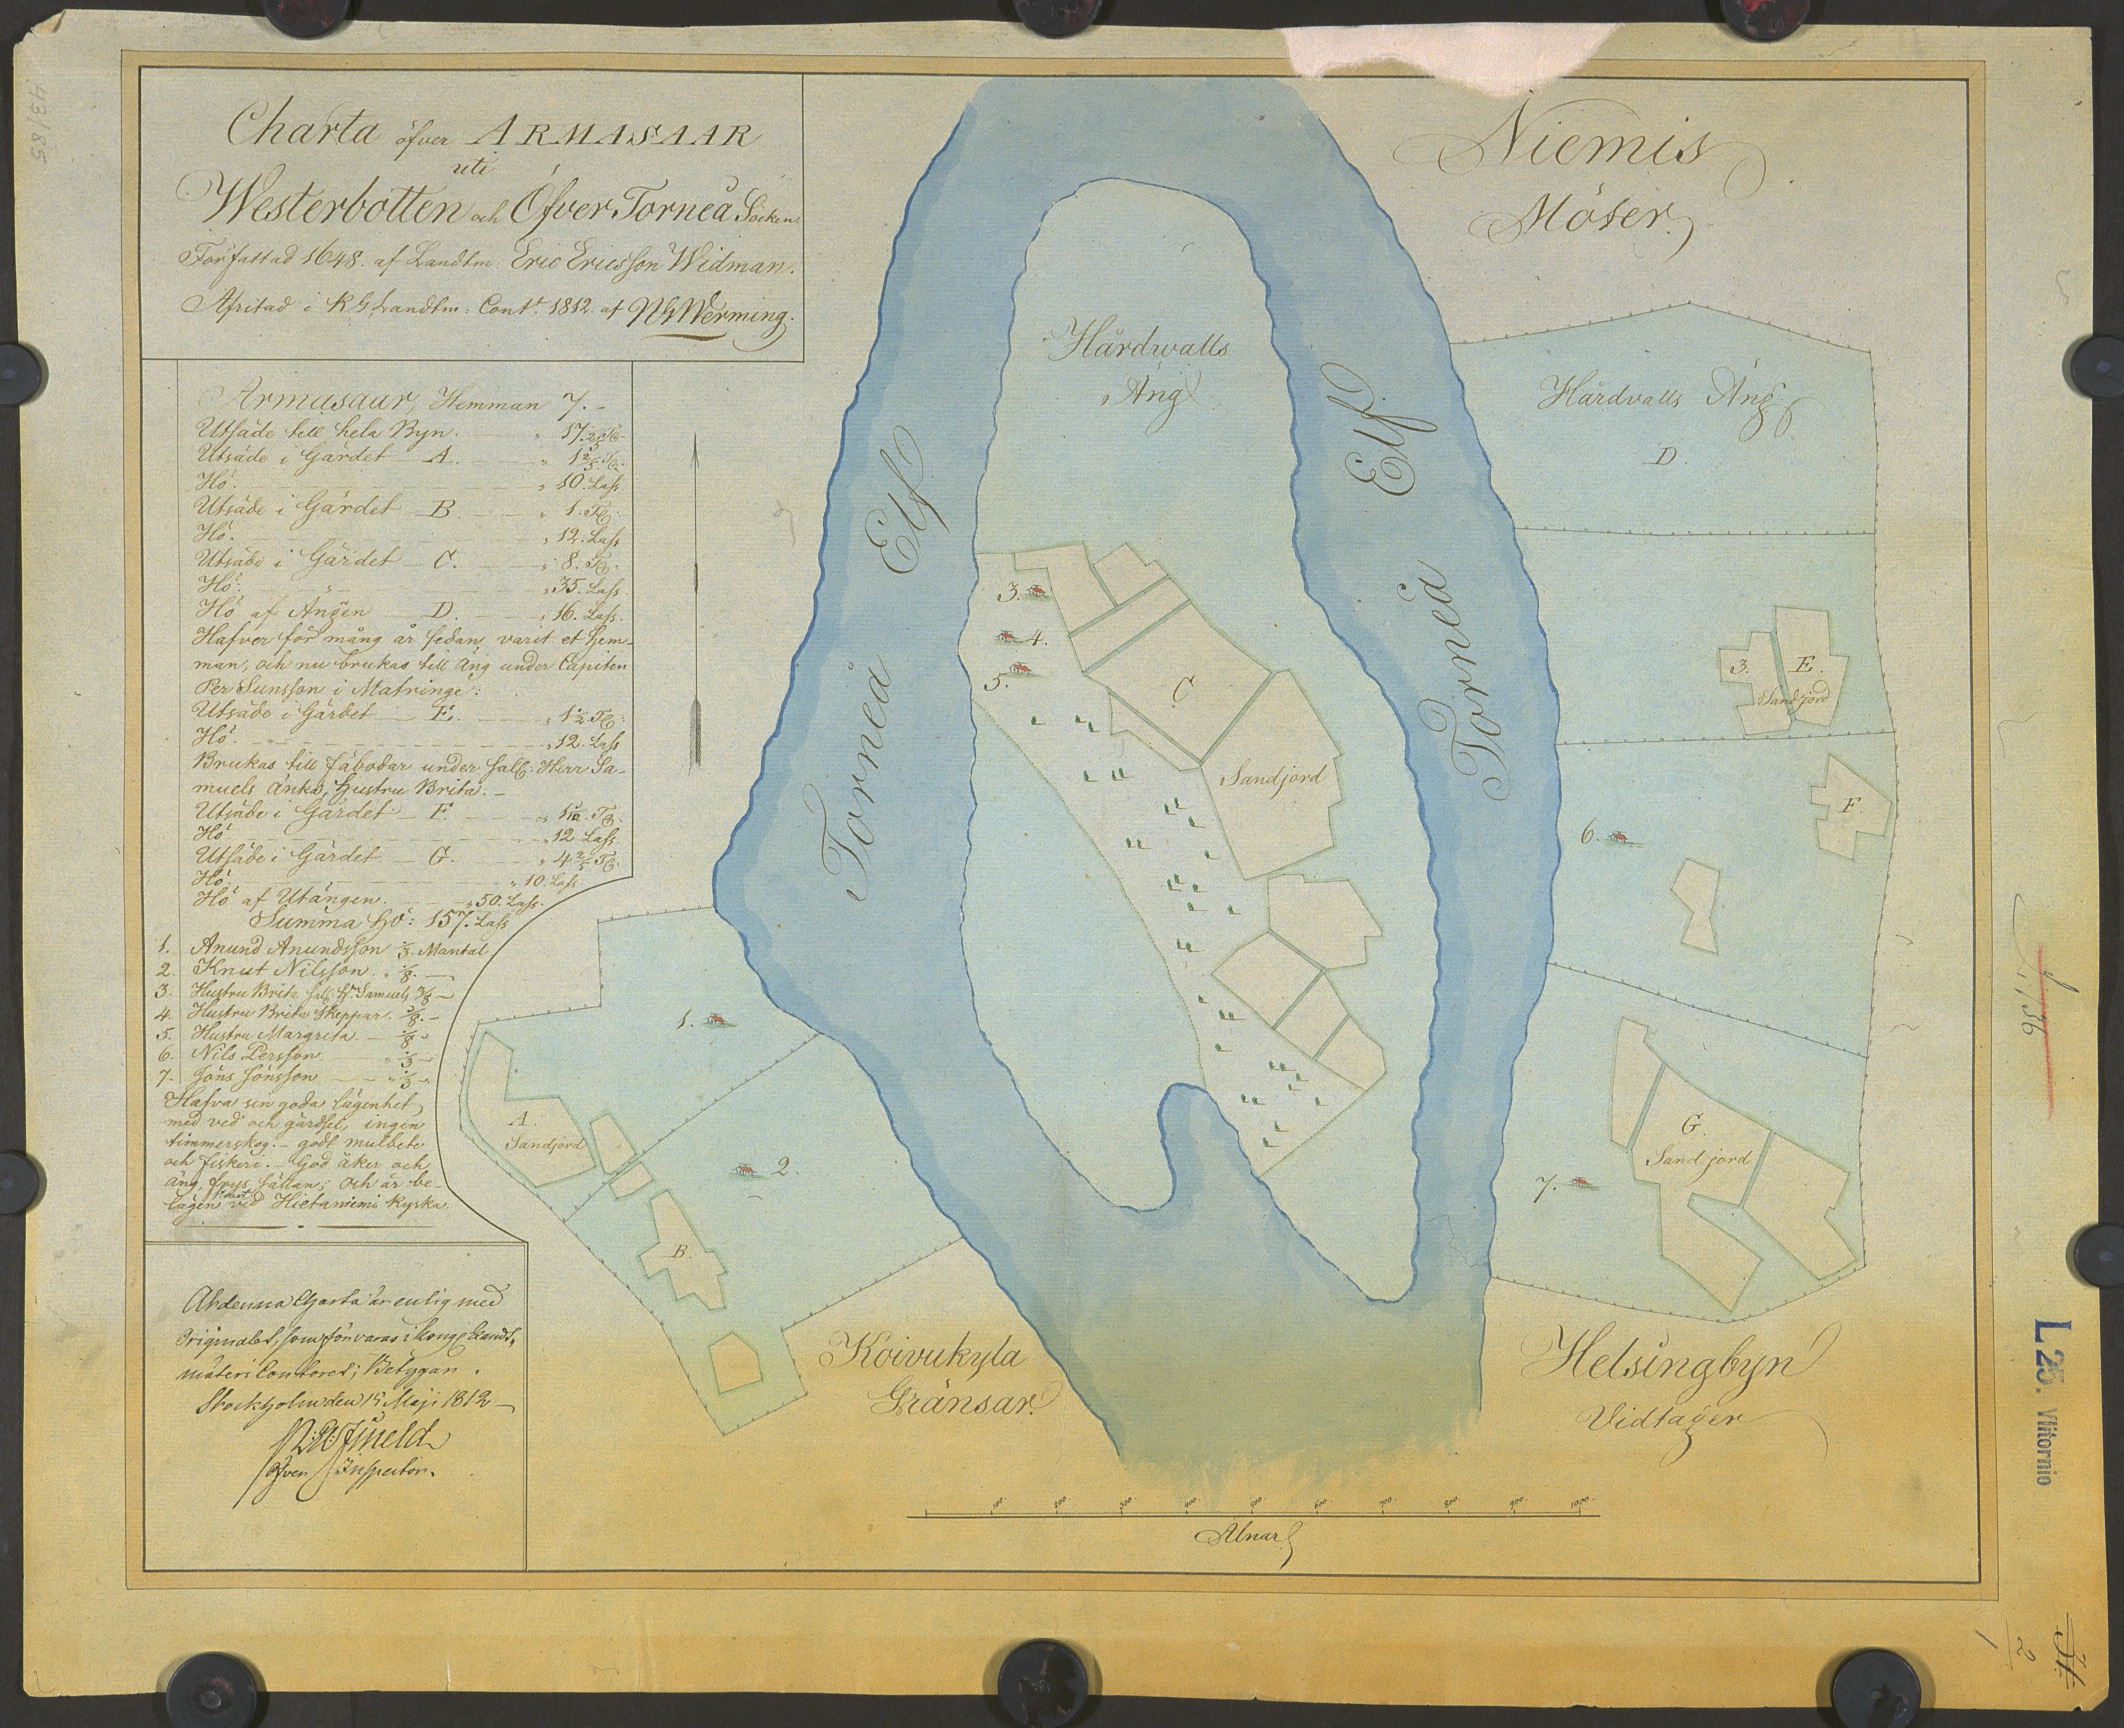 Charta öfver ARMASAAR
uti
Westerbotten och Öfver Torneå Socken.
Författad 1648. af Landtm. Eric Ericsson Widman.
Afritad i K G Landtm: Cont.t 1812. af Werming.
Armasaar, Hemman 7.
Utsäde till hela Byn. 17
Utsäde i Gärdet A. 1 2/5 Tr.
Hö. 10. Lass
Utsäde i Gärdet B. 1. Tr.
Hö. 12. Lass
Utsäde i Gärdet C. 8. Tr.
Hö. 35. Lass
Hö af Ängen D. 16. Lass.
Hafver för mång år sedan, varit et hem-
man, och nu brukas till äng under Capiten
Per Sunsson i Matringe:
Utsäde i Gärdet E. 1 1/2 Tr.
Hö. 12. Lass
Brukas till fäbodar under Sal: Herr Sa-
muels änka, hustru Brita.
Utsäde i Gärdet F. 1 1/10 Tr.
Hö. 12. Lass
Utsäde i Gärdet G. 4 2/5 Tr.
Hö. 10. Lass
Hö af Utängen. 50. Lass.
Summa hö: 157. Lass
1. Anund Anundsson 1/3. Mantal
2. Knut Nilsson
3. Hustru Brita Sal: Hr. Samuels 3/8
4. Hustru Brita Skeppar.
5. Hustru Margreta
6. Nils Persson 1/3
7. Jöns Jönsson 1/3
Hafva sin goda lägenhet
med ved och gärdsel, ingen
timmerskog. godt mulbete
och fiskeri. God åker och
äng, frys sällan; och är be-
lägen vid Hietaniemi Kyrka.
At denna Charta är enlig med
Originalet, som förvaras i Kongl Landt-
mäteri Contoret; Betygar.
Stockholm den 15 Maji 1812
Öfver Inspector.
Niemis
Möter.
Hårdwalls
Äng
Torneå Elf
Torneå Elf
Hårdvalls Äng
D.
3.
4.
5.
C
Sandjord
3.
E.
Sandjord
F.
6.
1.
A.
Sandjord
2.
B.
G.
Sandjord
7.
Koivukyla
Gränsar.
Helsingbyn
Vidtager
100. 200. 300. 400. 500. 600. 700. 800. 900. 1000.
Alnar
43/85
L 25. Ylitornio
2
1